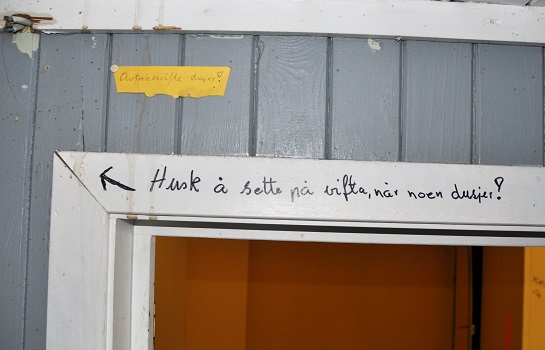 dusjer!
Husk å sette på vifta, når noen dusjer!